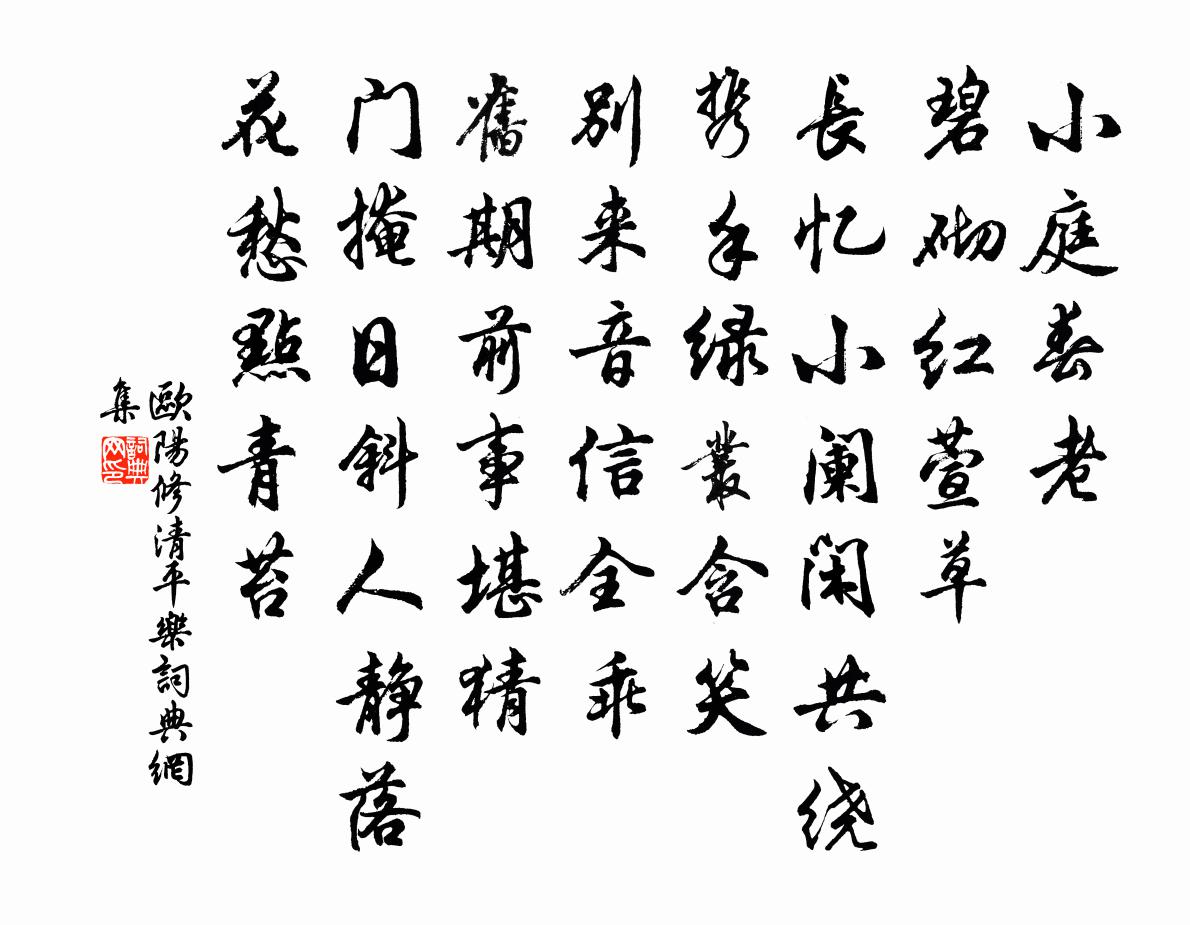 小庭春老
碧砌红萱草
長忆小阑闲共绕
携手绿叢含笑
别来音信全乖
舊期前事堪猜
门掩日斜人静落
花愁點青苔
歐陽修清平樂詞典網
集
詞典网印